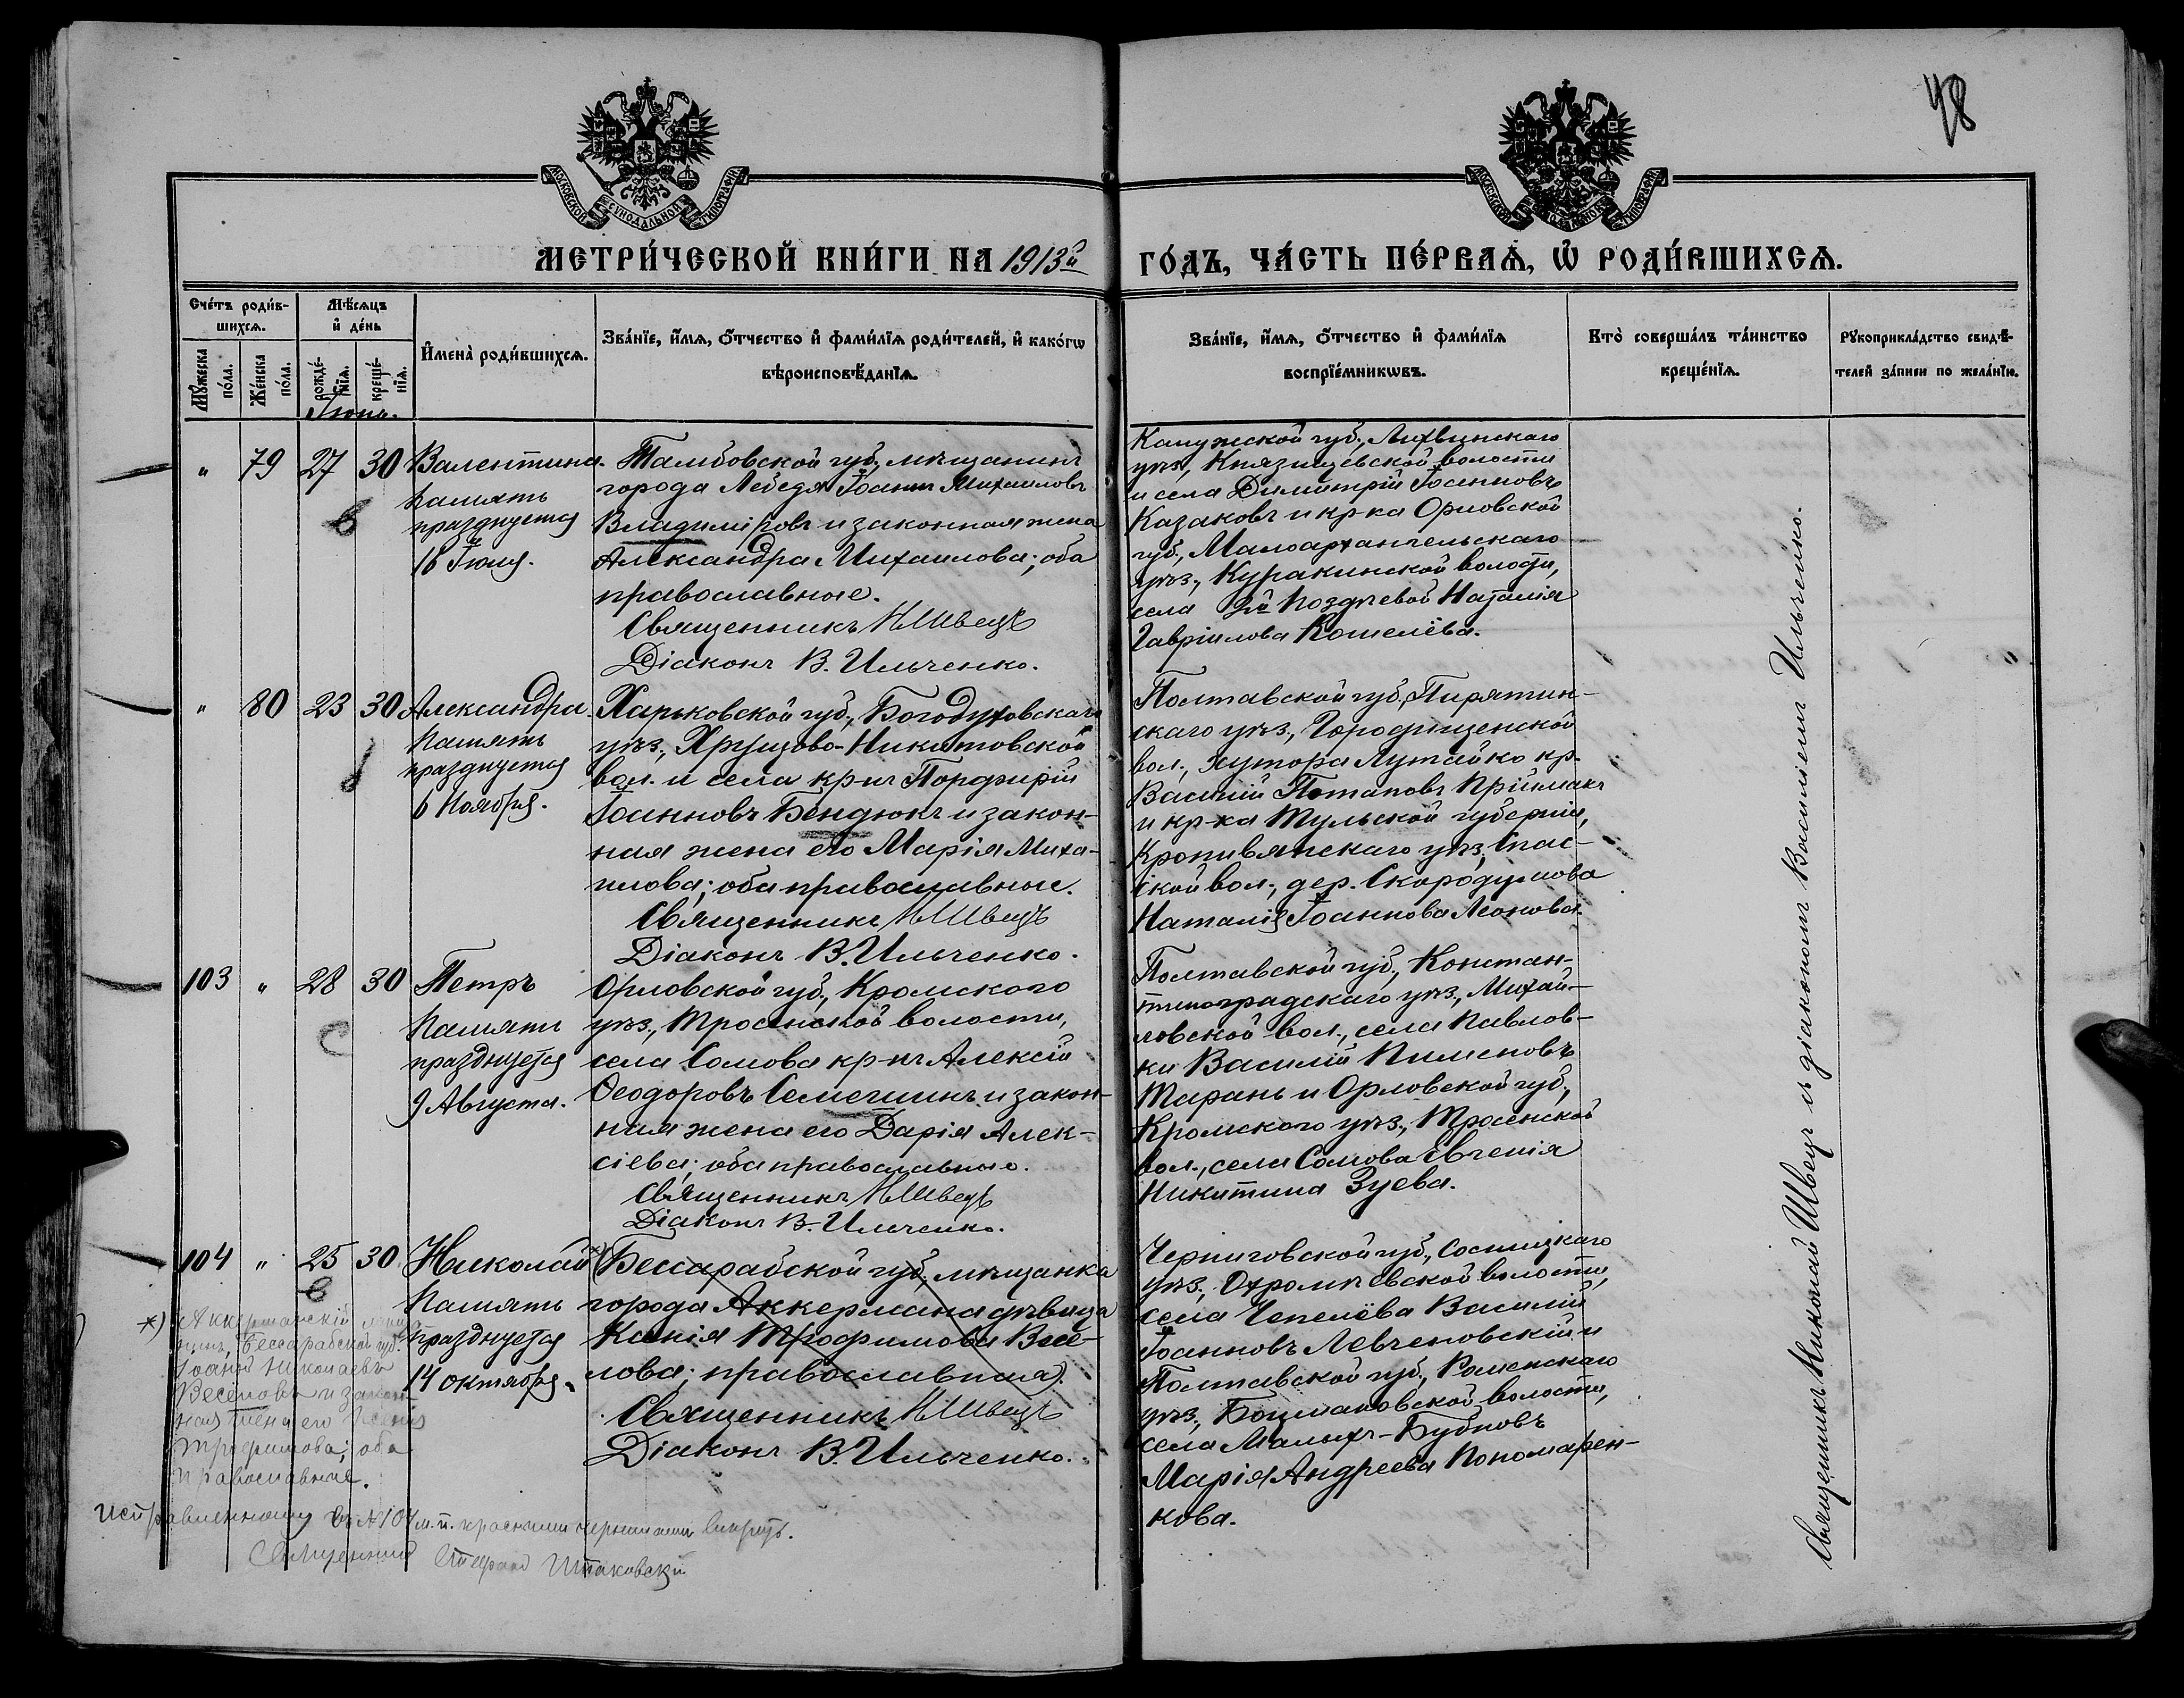 48
МОСКОВСКОЙ СУНОДАЛЬНОЙ ТИПОГРАФІИ
МОСКОВСКОЙ СУНОДАЛЬНОЙ ТИПОГРАФІИ
МЕТРИ́ЧЕСКОЙ КНИ́ГИ НА 1913й
ГО́ДЪ, ЧА́СТЬ ПЕ́РВАѦ, Ѡ҆ РОДИ́ВШИХСѦ.
Сче́тъ роди́в-
шихсѧ.
Мꙋ́жеска по́ла.
Же́нска по́ла.
Мѣ́сѧцъ
и҆ де́нь
рожде́-
нїѧ.
креще́-
нїѧ.
И҆мена̀ роди́вшихсѧ.
Зва́нїе, и҆́мѧ, ѻ҆́тчество и҆ фами́лїѧ роди́телей, и҆ како́гѡ
вѣроисповѣ́данїѧ.
Зва́нїе, и҆́мѧ, ѻ҆́тчество и҆ фами́лїѧ
воспрїе́мникѡвъ.
Кто̀ соверша́лъ та́инство
креще́нїѧ.
Рꙋкоприкла́дство свидѣ́-
телей за́писи по жела́нїю.
Іюнь.
" 79 27 30
Валентина.
Память
празднуется
16 Іюля.
Тамбовской губ., мѣщанинъ
города Лебедя Іоаннъ Михаиловъ
Владиміровъ и законная жена
Александра Михаилова; оба
православные.
Священникъ Н Швецъ
Діаконъ В. Ильченко.
Калужской губ., Лихвинскаго
уѣз., Князищевской волости
и села Димитрій Іоанновъ
Казаковъ и кр-ка Орловской
губ., Малоархангельскаго
уѣз., Куракинской волости,
села 2й Поздѣевой Наталія
Гавріилова Кошелёва.
" 80 23 30
Александра
Память
празднуется
6 Ноября.
Харьковской губ., Богодуховскаго
уѣз., Хрущово-Никитовской
вол. и села кр-нъ Порфирій
Іоанновъ Бендюкъ и закон-
ная жена его Марія Миха-
илова; оба православные.
Священникъ Н Швецъ
Діаконъ В. Ильченко.
Полтавской губ., Пирятин-
скаго уѣз., Городищенской
вол., хутора Лутайко кр.
Василій Потаповъ Приймакъ
и кр-ка Тульской губерніи,
Кропивянскаго уѣз., Спас-
ской вол., дер. Скородумова
Наталія Іоаннова Леонова.
103 " 28 30
Петръ
Память
празднуется
9 Августа.
Орловской губ., Кромского
уѣз., Тросенской волости,
села Сомова кр-нъ Алексій
Ѳеодоровъ Семешинъ и закон-
ная жена его Дарія Алек-
сіева; оба православные.
Священникъ Н Швецъ
Діаконъ В. Ильченко.
Полтавской губ., Констан-
тиноградскаго уѣз., Михай-
ловской вол., села Павлов-
ки Василій Пименовъ
Тарань и Орловской губ.,
Кромского уѣз., Тросенской
вол., села Сомова Евгенія
Никитина Зуева.
104 " 25 30
Николай
Память
празднуется
14 октября.
*) (Бессарабской губ., мѣщанка
города Аккермана дѣвица
Ксенія Трофимова Весе-
лова; православная).
Священникъ Н Швецъ
Діаконъ В. Ильченко.
Черниговской губ., Сосницкаго
уѣз., Охромѣевской волости,
села Чепелёва Василій
Іоанновъ Левченовскій и
Полтавской губ., Роменскаго
уѣз., Боцмановской волости,
села Малыхъ-Бубновъ
Марія Андреева Пономарен-
кова.
*) Аккерманскій мѣща-
нинъ, Бессарабской губ.
Іоаннъ Николаевъ
Веселовъ и закон-
ная жена его Ксенія
Трофимова; оба
православные.
Исправленному въ № 104 м. п. красными чернилами вѣрить.
Священникъ Стефанъ
Священникъ Николай Швецъ и діакономъ Василіемъ Ильченко.